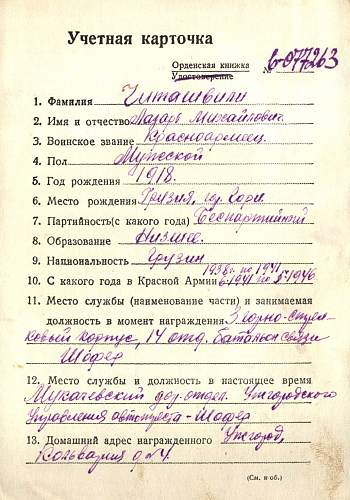 Учетная карточка
Орденская книжка
Удостоверение № Б-077263
1. Фамилия Читашвили
2. Имя и отчество Лазарь Михайлович
3. Воинское звание Красноармеец
4. Пол Мужской
5. Год рождения 1918.
6. Место рождения Грузия, гор. Гори.
7. Партийность(с какого года) Беспартийный
8. Образование Низшее.
9. Национальность Грузин
1938г. по 1941
10. С какого года в Красной Армии 1941 по 1946
11. Место службы (наименование части) и занимаемая
должность в момент награждения 3 горно-стрел-
ковый корпус, 14 отд. батальон связи
Шофер
12. Место службы и должность в настоящее время
Мукачевский дор. отдел. Ужгородского
Управления автотреста - Шофер
13. Домашний адрес награжденного Ужгород,
Кальвария д. №4.
(См. и об.)